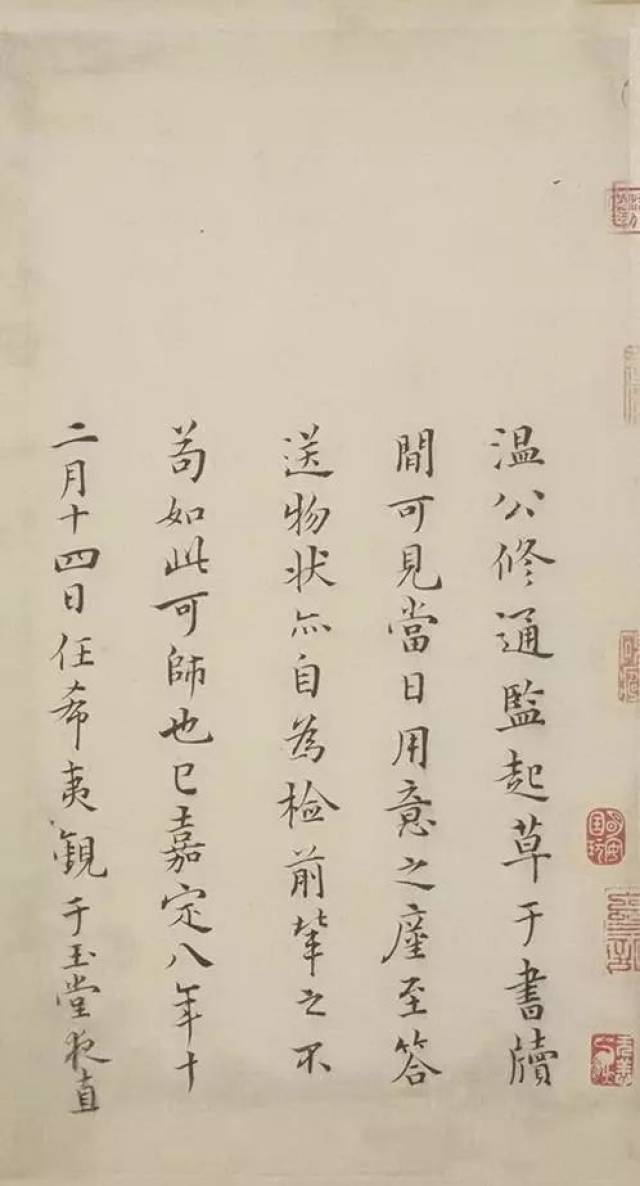 温公修通監起草于書牘
間可見當日用意之度至答
送物状亦自為檢前輩之不
苟如此可師也已嘉定八年十
二月十四日任希夷觀于玉堂夜直